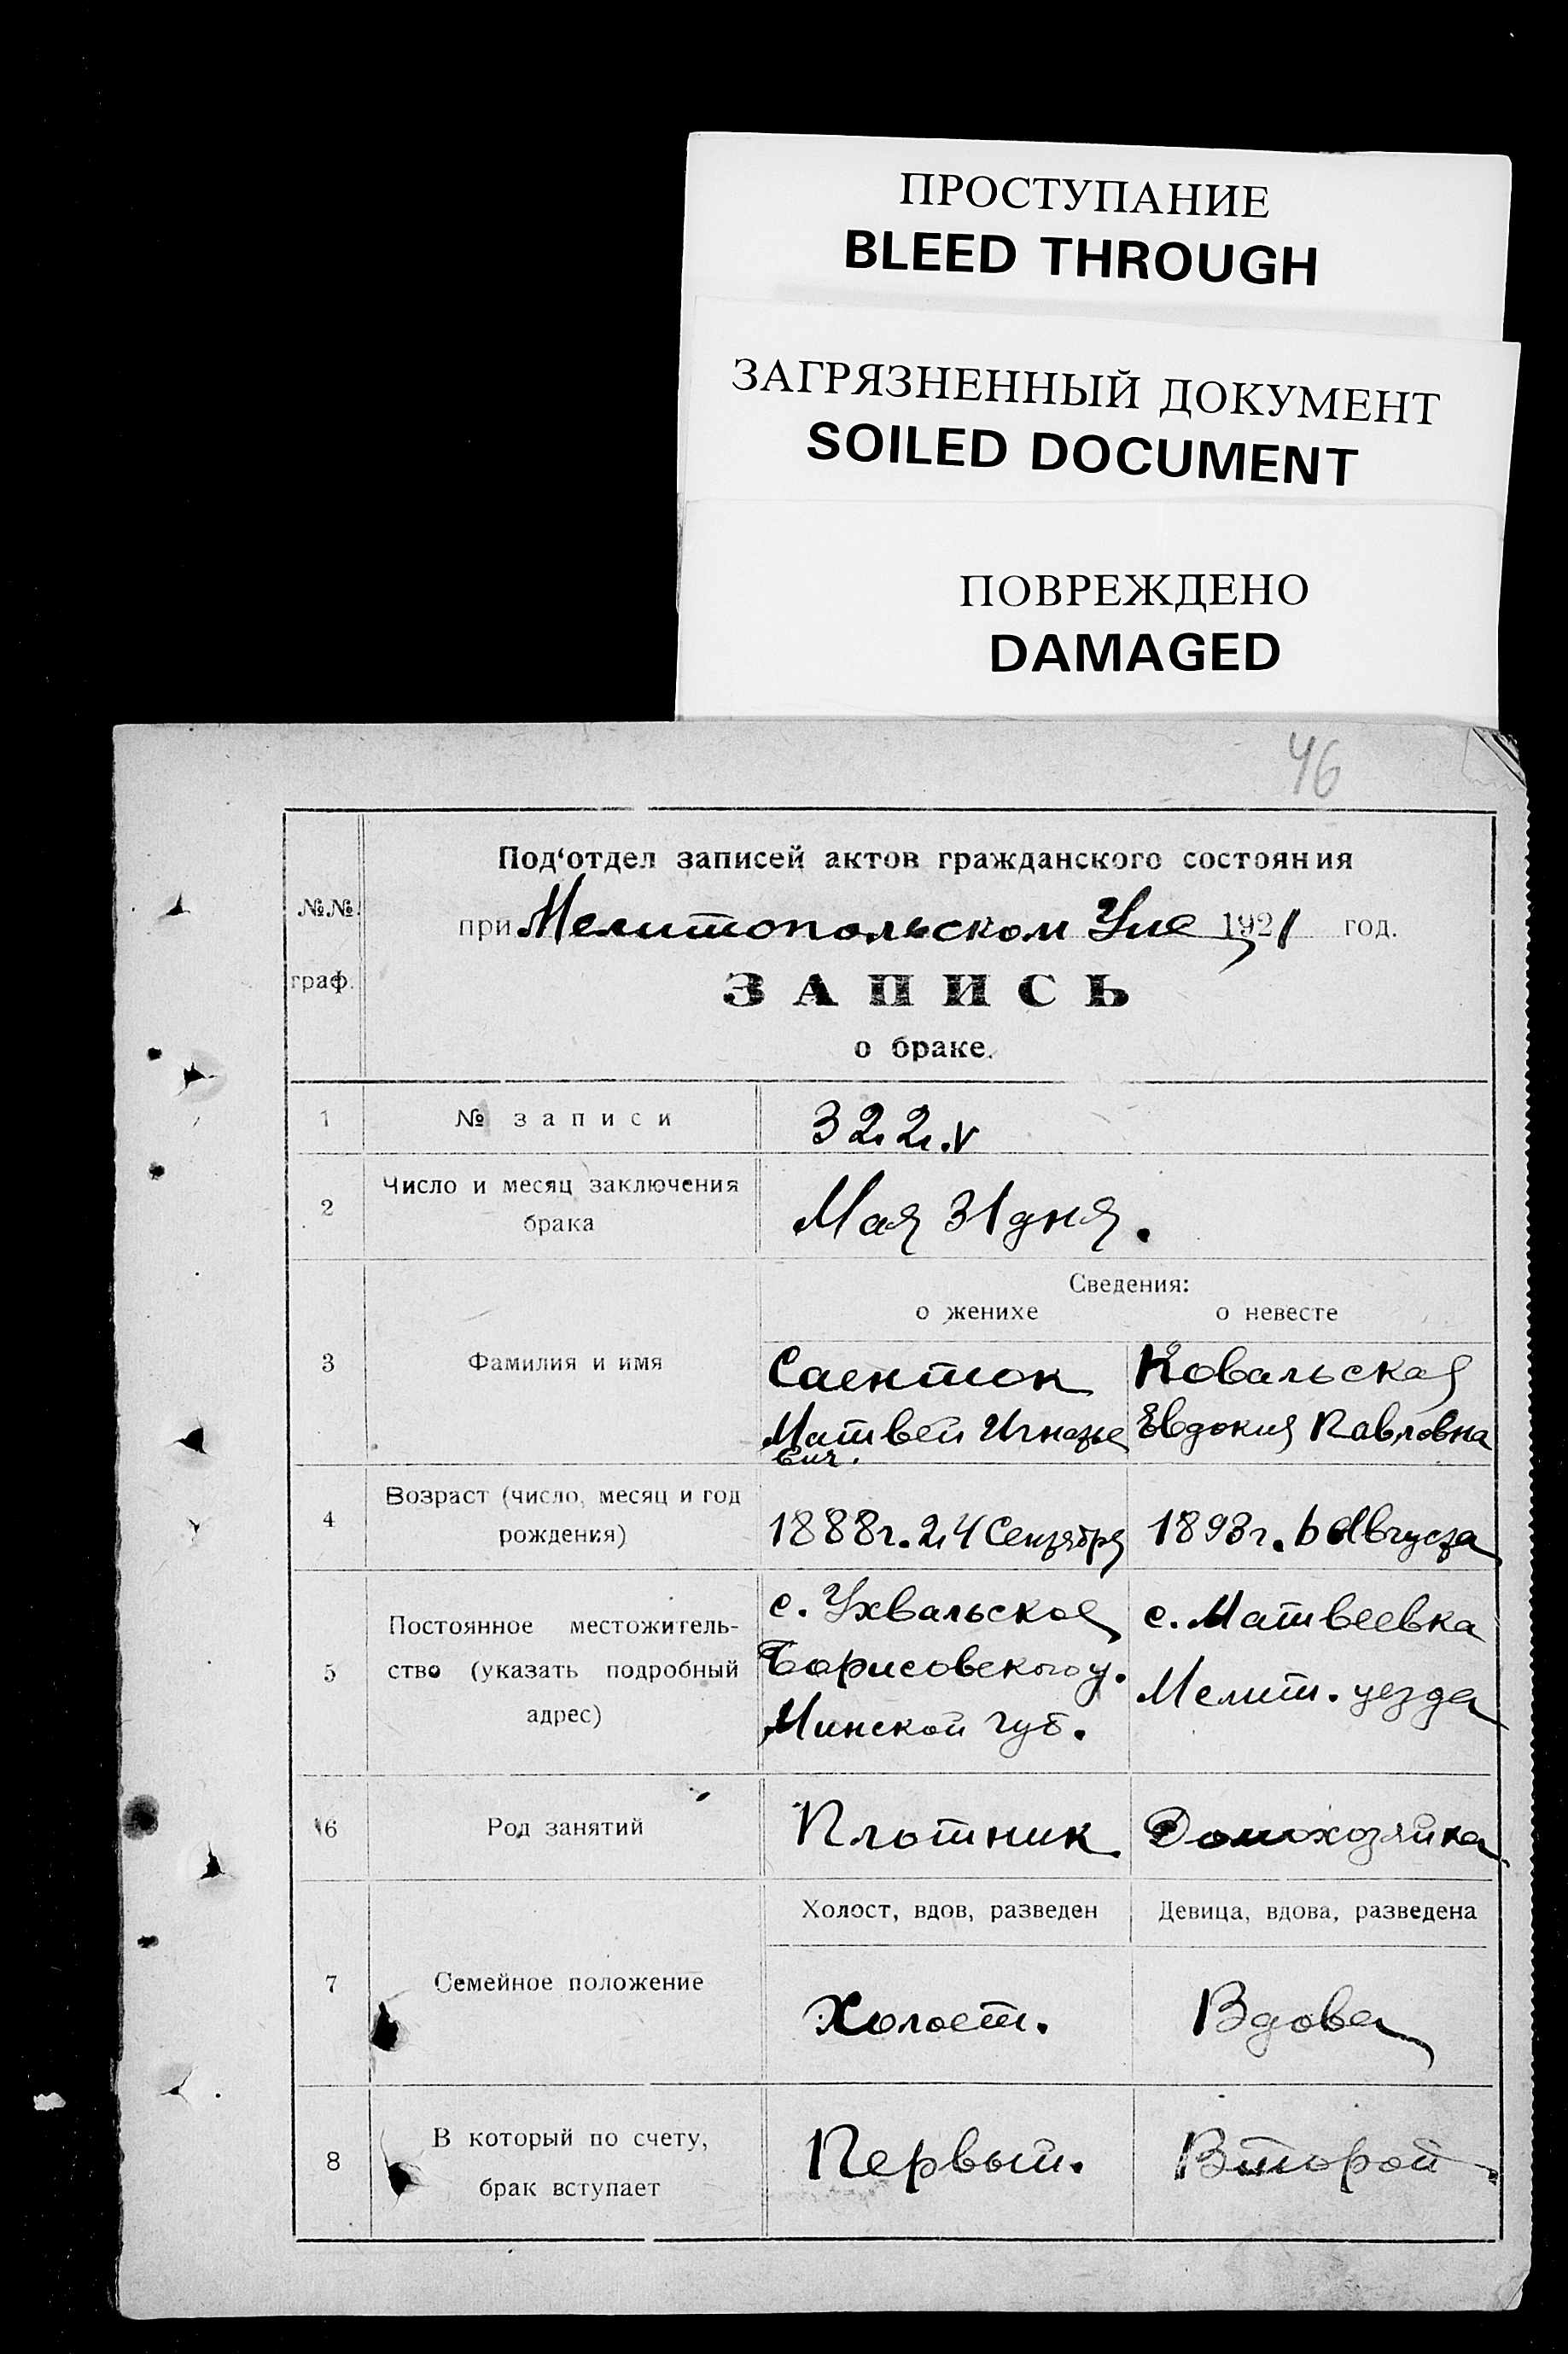 ПРОСТУПАНИЕ
BLEED THROUGH
ЗАГРЯЗНЕННЫЙ ДОКУМЕНТ
SOILED DOCUMENT
ПОВРЕЖДЕНО
DAMAGED
46
№№ граф.
Под‘отдел записей актов гражданского состояния
при Мелитопольском 1921 год.
ЗАПИСЬ
о браке.
1 № записи 322.
2 Число и месяц заключения брака Мая 31 дня.
Сведения:
о женихе о невесте
3 Фамилия и имя
Саенток Ковальская
Матвей Игнатье Евдокия Павловна
вич.
4 Возраст (число, месяц и год рождения)
1888г. 24 Сентября 1893г. 6 Августа
5 Постоянное местожитель-
ство (указать подробный
адрес)
с. Ухвальское с. Матвеевка
Борисовского у. Мелит. уезда
Минской губ.
6 Род занятий Плотник Домохозяйка
Холост, вдов, разведен Девица, вдова, разведена
7 Семейное положение Холост. Вдова
8 В который по счету,
брак вступает
Первый. Второй